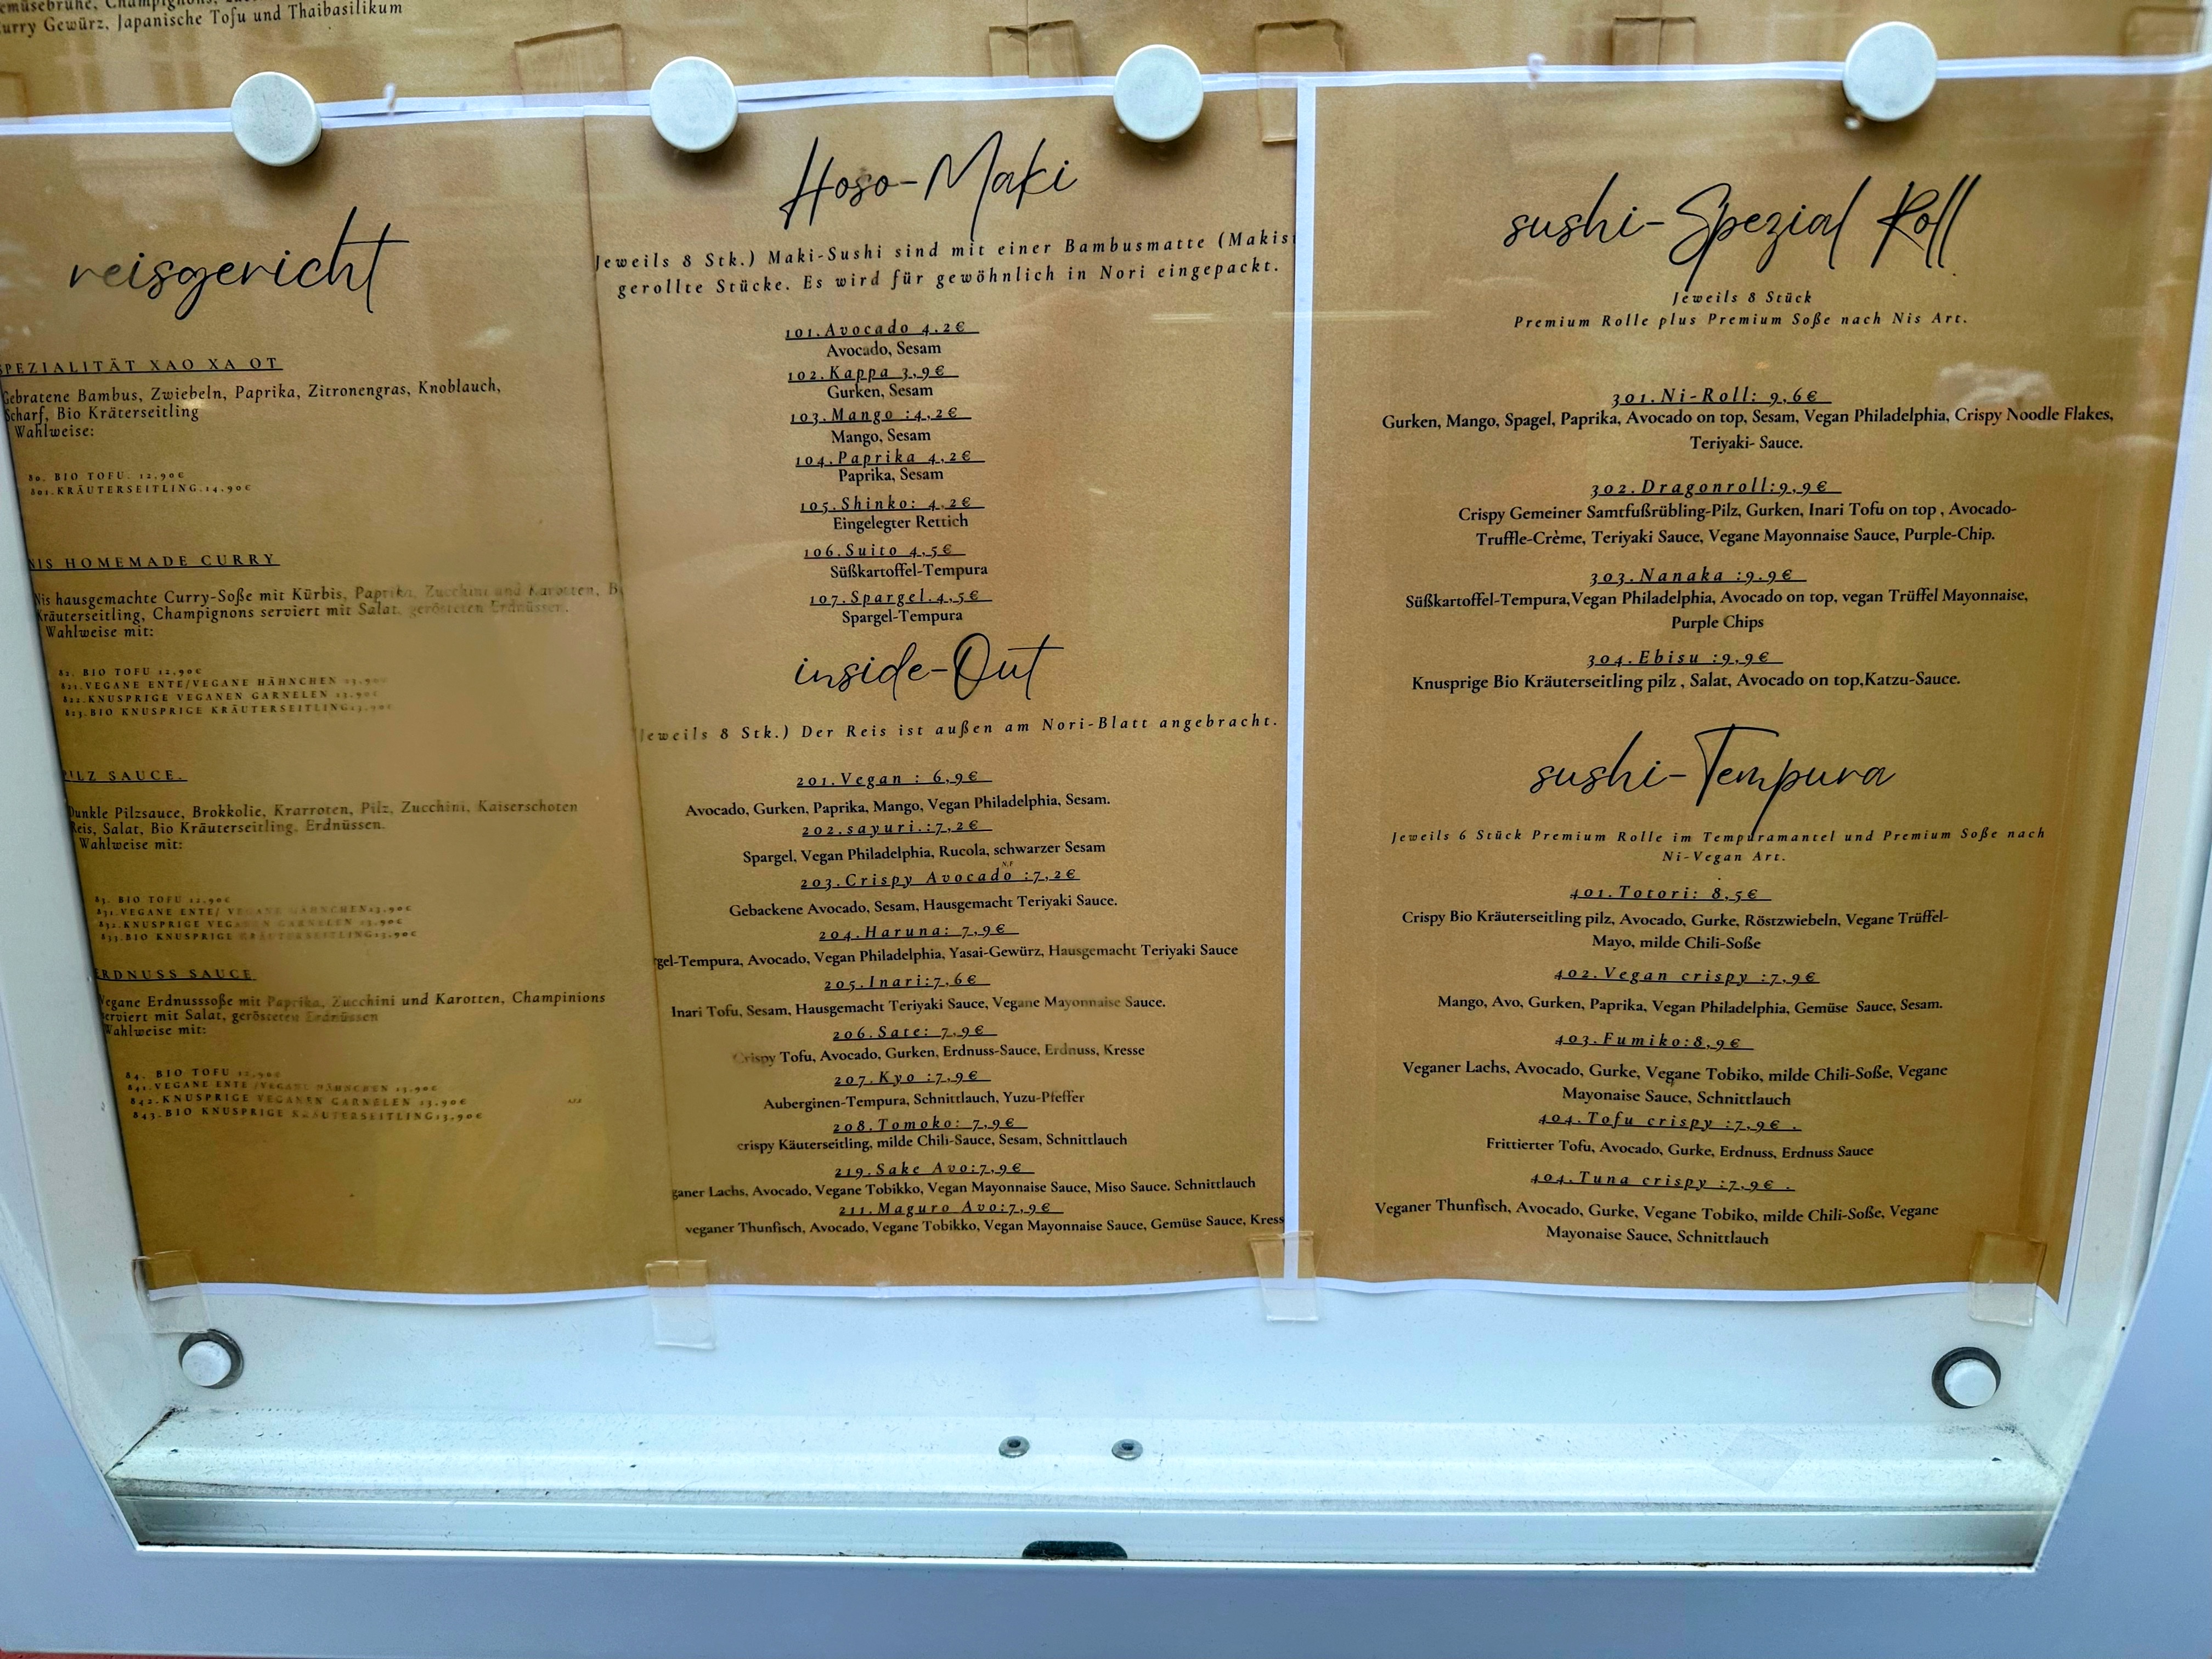 Champignons,
Curry Gewürz, Japanische Tofu und Thaibasilikum
reisgericht
SPEZIALITÄT XAO XA OT
Gebratene Bambus, Zwiebeln, Paprika, Zitronengras, Knoblauch,
Scharf, Bio Kräterseitling
Wahlweise:
80. BIO TOFU. 12,90€
801.KRÄUTERSEITLING.14,90€
NIS HOMEMADE CURRY
Nis hausgemachte Curry-Soße mit Kürbis, Paprika, Zucchini und Karotten,
Kräuterseitling, Champignons serviert mit Salat, gerösteten Erdnüssen.
Wahlweise mit:
82. BIO TOFU 12,90€
821.VEGANE ENTE/VEGANE HÄHNCHEN 13,90
822.KNUSPRIGE VEGANEN GARNELEN 13,90€
823.BIO KNUSPRIGE KRÄUTERSEITLING13,90€
PILZ SAUCE.
Dunkle Pilzsauce, Brokkolie, Krarroten, Pilz, Zucchini, Kaiserschoten
Reis, Salat, Bio Kräuterseitling, Erdnüssen.
Wahlweise mit:
83. BIO TOFU 12,90€
831.VEGANE ENTE/ VEGANE HÄHNCHEN13,90€
832.KNUSPRIGE VEGANEN GARNELEN 13,90€
833.BIO KNUSPRIGE KRÄUTERSEITLING13,90€
ERDNUSS SAUCE
Vegane Erdnusssoße mit Paprika, Zucchini und Karotten, Champinions
serviert mit Salat, gerösteten Erdnüssen
Wahlweise mit:
84. BIO TOFU 12,90€
841.VEGANE ENTE /VEGANE HÄHNCHEN 13,90€
842.KNUSPRIGE VEGANEN GARNELEN 13,90€
843.BIO KNUSPRIGE KRÄUTERSEITLING13,90€
Hoso-Maki
Jeweils 8 Stk.) Maki-Sushi sind mit einer Bambusmatte (Makis
gerollte Stücke. Es wird für gewöhnlich in Nori eingepackt.
101.Avocado 4.2€
Avocado, Sesam
102.Kappa 3,9€
Gurken, Sesam
103.Mango :4,2€
Mango, Sesam
104.Paprika 4,2€
Paprika, Sesam
105.Shinko: 4,2€
Eingelegter Rettich
106.Suito 4,5€
Süßkartoffel-Tempura
107.Spargel.4,5€
Spargel-Tempura
inside-Out
Jeweils 8 Stk.) Der Reis ist außen am Nori-Blatt angebracht.
201.Vegan : 6,9€
Avocado, Gurken, Paprika, Mango, Vegan Philadelphia, Sesam.
202.sayuri.:7,2€
Spargel, Vegan Philadelphia, Rucola, schwarzer Sesam
203.Crispy Avocado :7,2€
Gebackene Avocado, Sesam, Hausgemacht Teriyaki Sauce.
204.Haruna: 7,9€
gel-Tempura, Avocado, Vegan Philadelphia, Yasai-Gewürz, Hausgemacht Teriyaki Sauce
205.Inari:7,6€
Inari Tofu, Sesam, Hausgemacht Teriyaki Sauce, Vegane Mayonnaise Sauce.
206.Sate: 7,9€
Crispy Tofu, Avocado, Gurken, Erdnuss-Sauce, Erdnuss, Kresse
207.Kyo :7,9€
Auberginen-Tempura, Schnittlauch, Yuzu-Pfeffer
208.Tomoko: 7,9€
crispy Käuterseitling, milde Chili-Sauce, Sesam, Schnittlauch
219.Sake Avo:7,9€
ganer Lachs, Avocado, Vegane Tobikko, Vegan Mayonnaise Sauce, Miso Sauce. Schnittlauch
211.Maguro Avo:7,9€
veganer Thunfisch, Avocado, Vegane Tobikko, Vegan Mayonnaise Sauce, Gemüse Sauce, Kress
sushi-Spezial Roll
Jeweils 8 Stück
Premium Rolle plus Premium Soße nach Nis Art.
301.Ni-Roll: 9,6€
Gurken, Mango, Spagel, Paprika, Avocado on top, Sesam, Vegan Philadelphia, Crispy Noodle Flakes,
Teriyaki- Sauce.
302.Dragonroll:9,9€
Crispy Gemeiner Samtfußrübling-Pilz, Gurken, Inari Tofu on top , Avocado-
Truffle-Crème, Teriyaki Sauce, Vegane Mayonnaise Sauce, Purple-Chip.
303.Nanaka :9.9€
Süßkartoffel-Tempura,Vegan Philadelphia, Avocado on top, vegan Trüffel Mayonnaise,
Purple Chips
304.Ebisu :9,9€
Knusprige Bio Kräuterseitling pilz , Salat, Avocado on top,Katzu-Sauce.
sushi-Tempura
Jeweils 6 Stück Premium Rolle im Tempuramantel und Premium Soße nach
Ni-Vegan Art.
401.Totori: 8,5€
Crispy Bio Kräuterseitling pilz, Avocado, Gurke, Röstzwiebeln, Vegane Trüffel-
Mayo, milde Chili-Soße
402.Vegan crispy :7,9€
Mango, Avo, Gurken, Paprika, Vegan Philadelphia, Gemüse Sauce, Sesam.
403.Fumiko:8,9€
Veganer Lachs, Avocado, Gurke, Vegane Tobiko, milde Chili-Soße, Vegane
Mayonnaise Sauce, Schnittlauch
404.Tofu crispy :7,9€ .
Frittierter Tofu, Avocado, Gurke, Erdnuss, Erdnuss Sauce
404.Tuna crispy :7,9€ .
Veganer Thunfisch, Avocado, Gurke, Vegane Tobiko, milde Chili-Soße, Vegane
Mayonaise Sauce, Schnittlauch